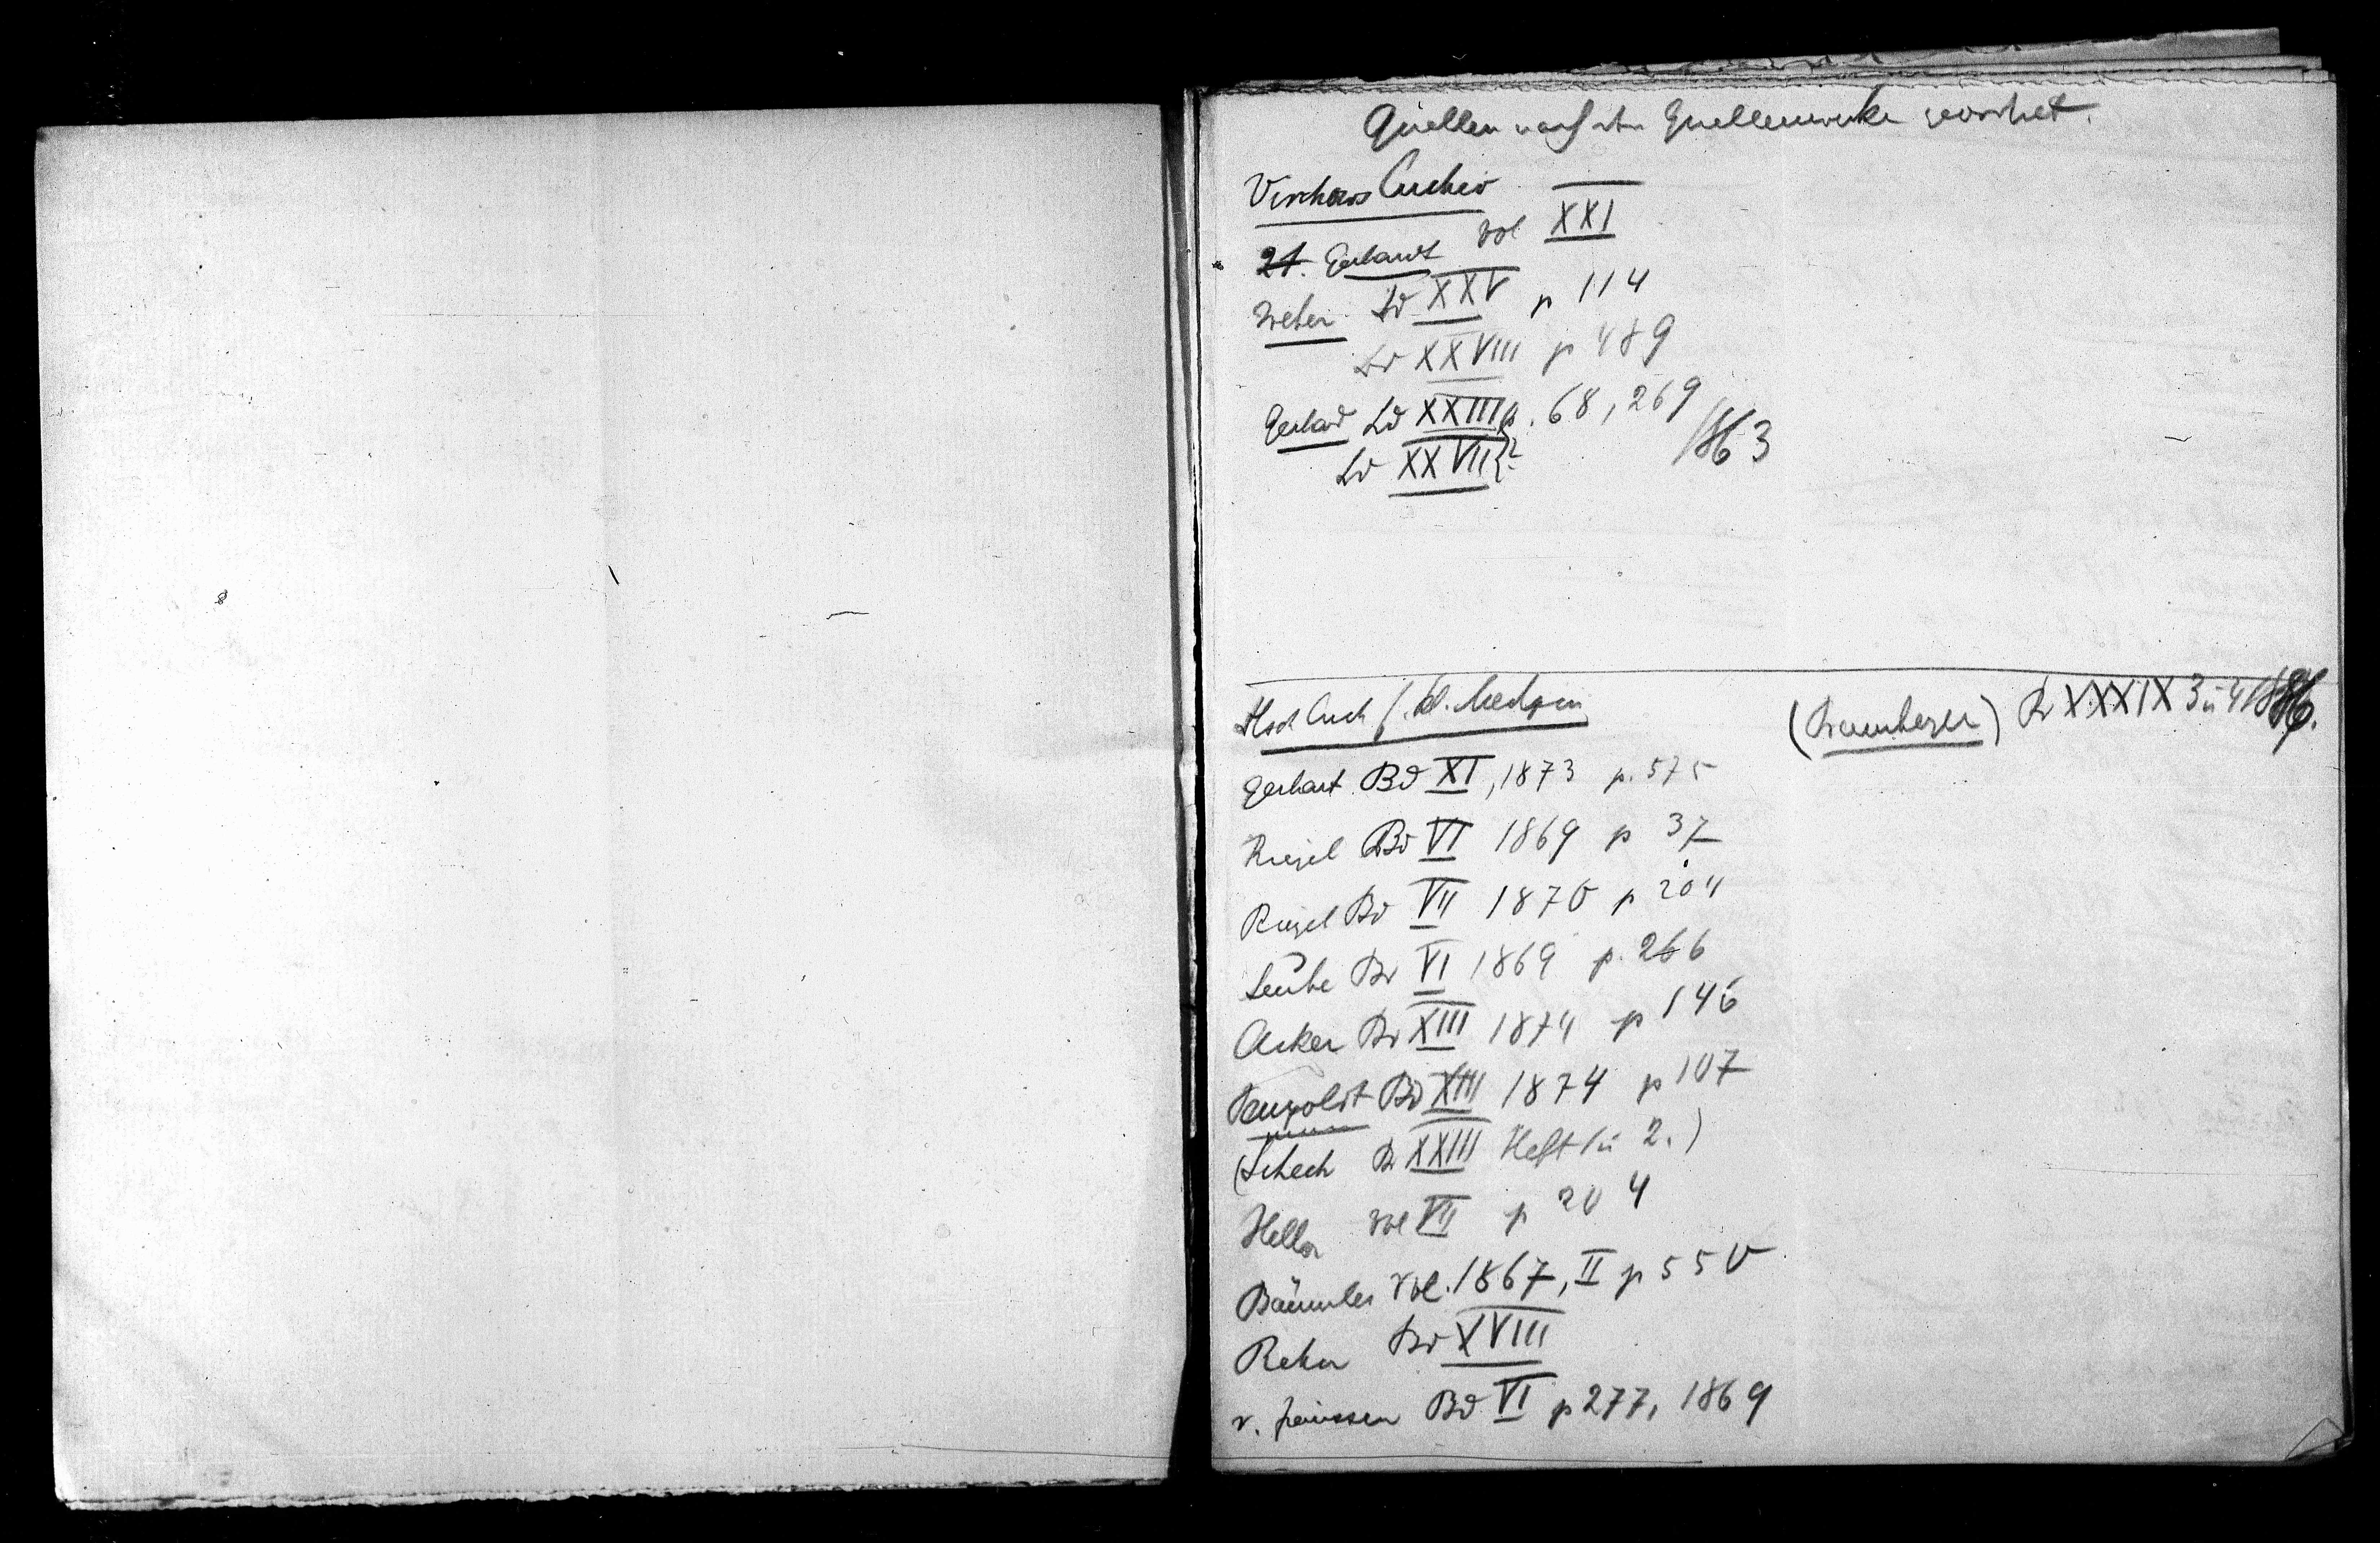 Quellen nach den Quellenwerken geordnet.
Virchows Archiv
21. Gerhardt vol XXI
Weber Bd XXV p 114
Bd XXVIII p 489
Gerhard Bd XXIII p. 68, 269
Bd XXVII ? 1863
Dtsch Arch f. kl. Medizin (Bamberger) Bd XXXIX 3 u 4
Gerhart Bd XI, 1873 p. 575
Riegel Bd VI 1869 p 37
Riegel Bd VII 1870 p 204
Leube Bd VI 1869 p. 266
Acker Bd XIII 1874 p 146
Penzoldt Bd XIII 1874 p 107
(Schech Bd XXIII Heft 1 u 2.)
Heller vol VII p 204
Bäumler vol. 1867, II p 550
Rehn Bd XVIII
v. Ziemssen Bd VI p 277, 1869